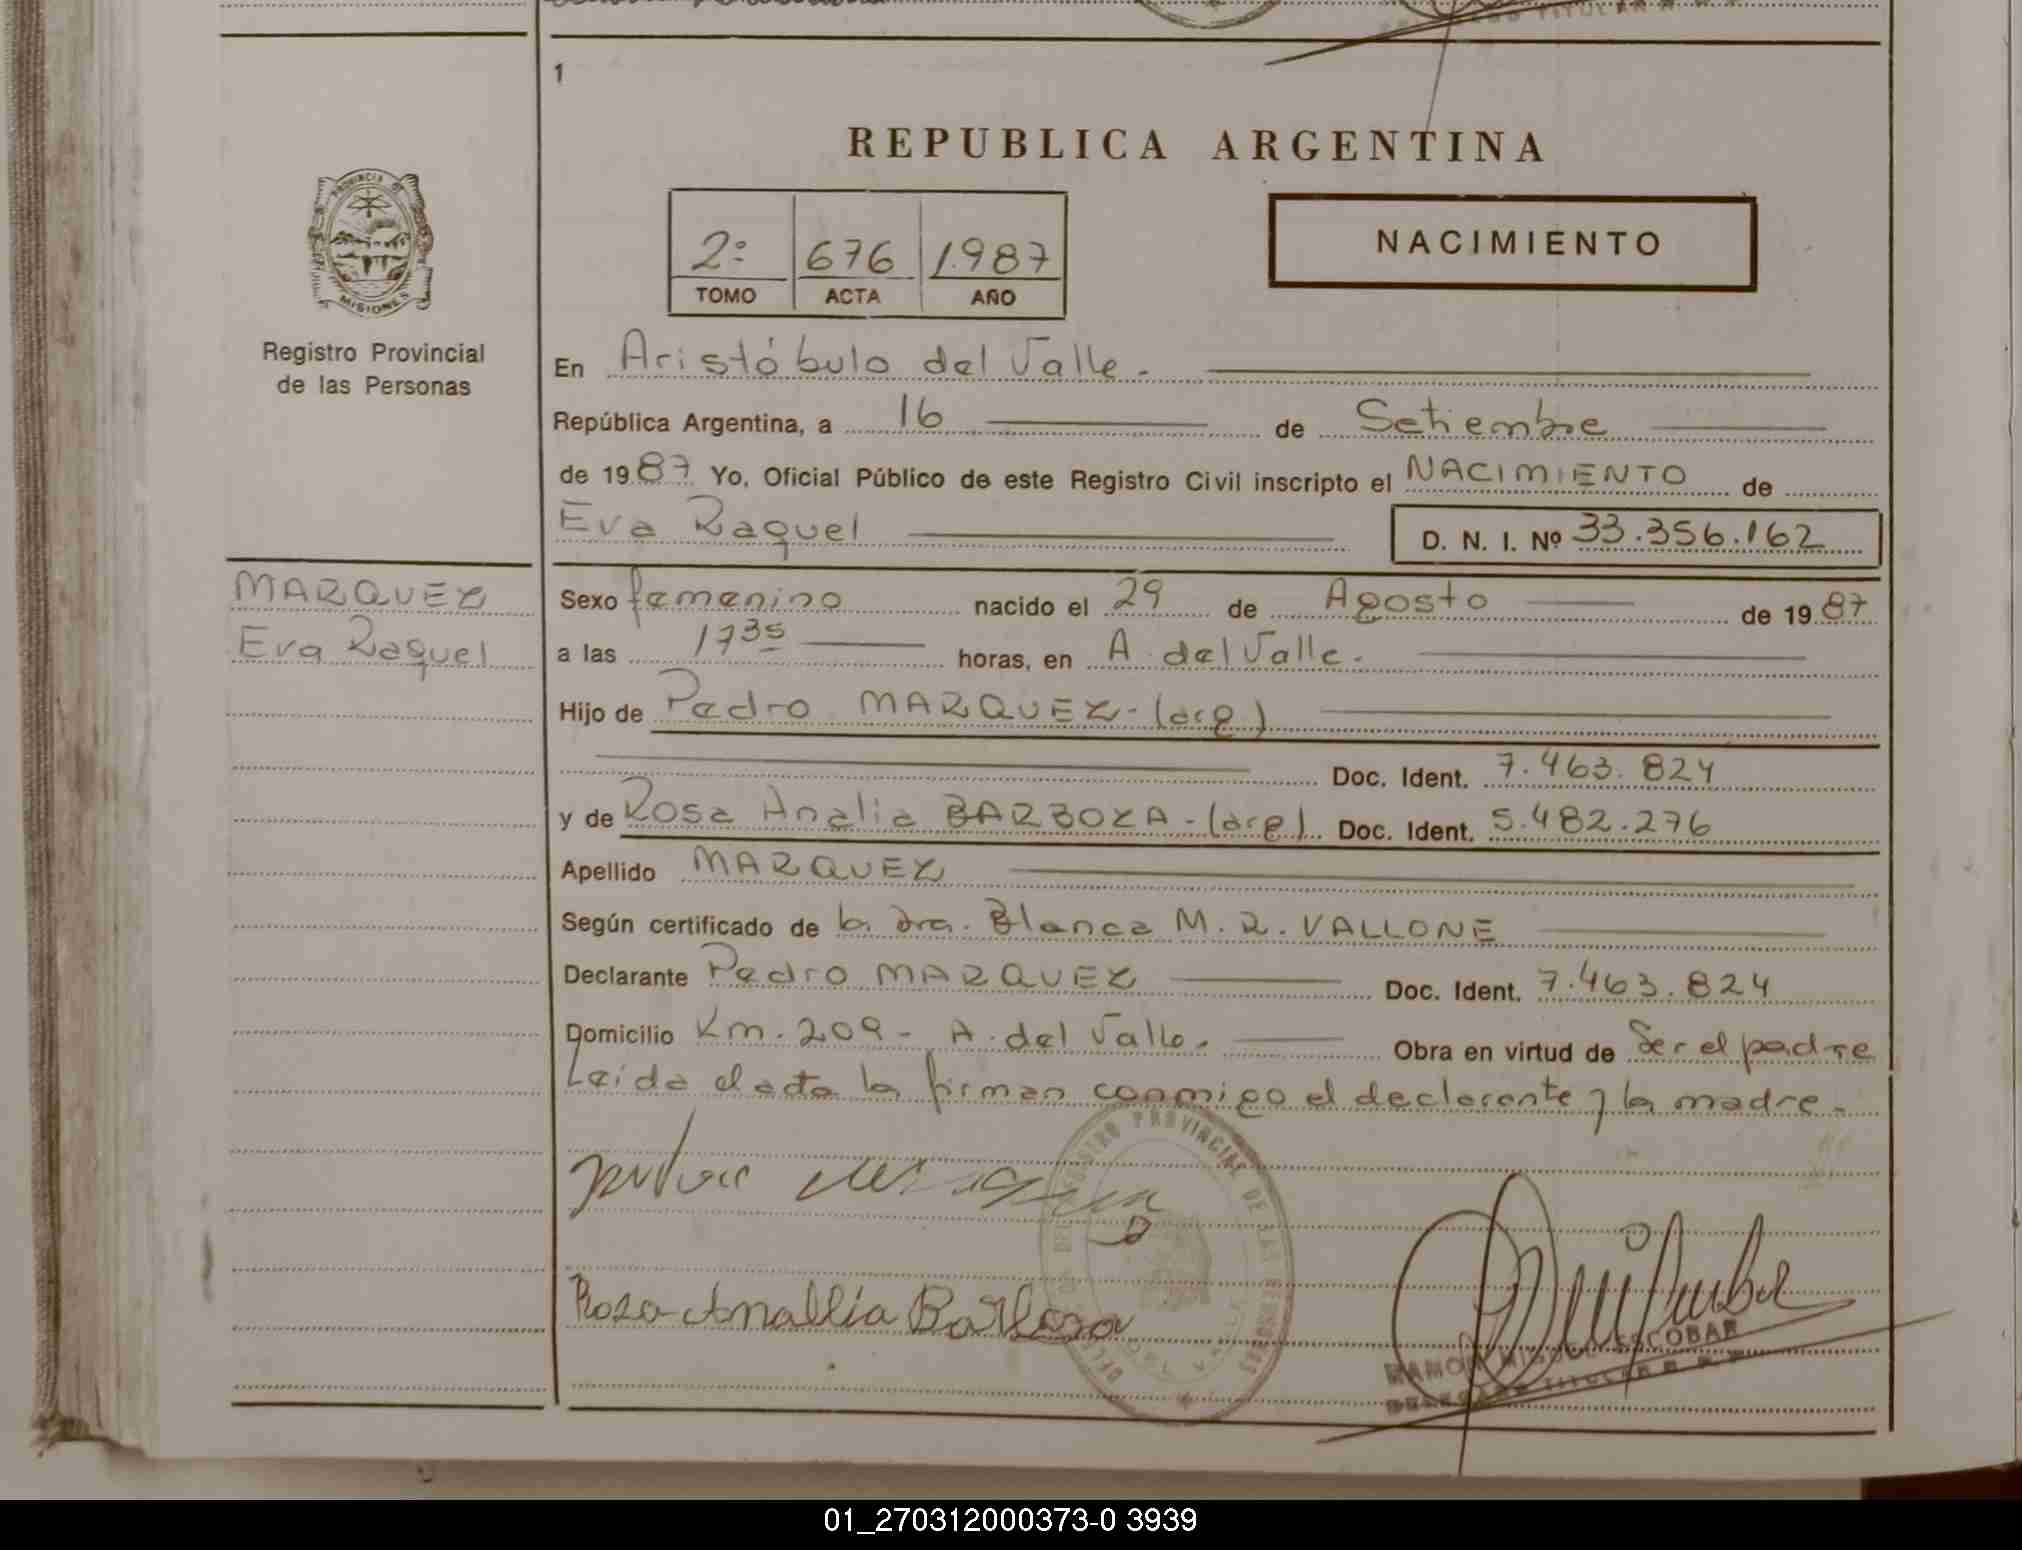 1
REPUBLICA ARGENTINA
2º 676 1.987
TOMO ACTA AÑO
NACIMIENTO
PROVINCIA DE
MISIONES
Registro Provincial
de las Personas
En Aristóbulo del Valle.
República Argentina, a 16 de Setiembre
de 1987 Yo, Oficial Público de este Registro Civil inscripto el NACIMIENTO de
Eva Raquel D. N. I. Nº 33.356.162
MARQUEZ
Eva Raquel
Sexo femenino nacido el 29 de Agosto de 1987
a las 17 35 horas, en A. del Valle.
Hijo de Pedro MARQUEZ - (arg)
Doc. Ident. 7.463.824
y de Rosa Analia BARBOZA - (arg). Doc. Ident. 5.482.276
Apellido MARQUEZ
Según certificado de la Dra. Blanca M. R. VALLONE
Declarante Pedro MARQUEZ Doc. Ident. 7.463.824
Domicilio Km. 209 - A. del Valle. Obra en virtud de Ser el padre
Leída el acta la firman conmigo el declarante y la madre.
REGISTRO PROVINCIAL DE LAS PERSONAS
Rosa Anallia Barboza
RAMON MIGUEL ESCOBAR
DELEGADO TITULAR R. P. P.
01_270312000373-0 3939